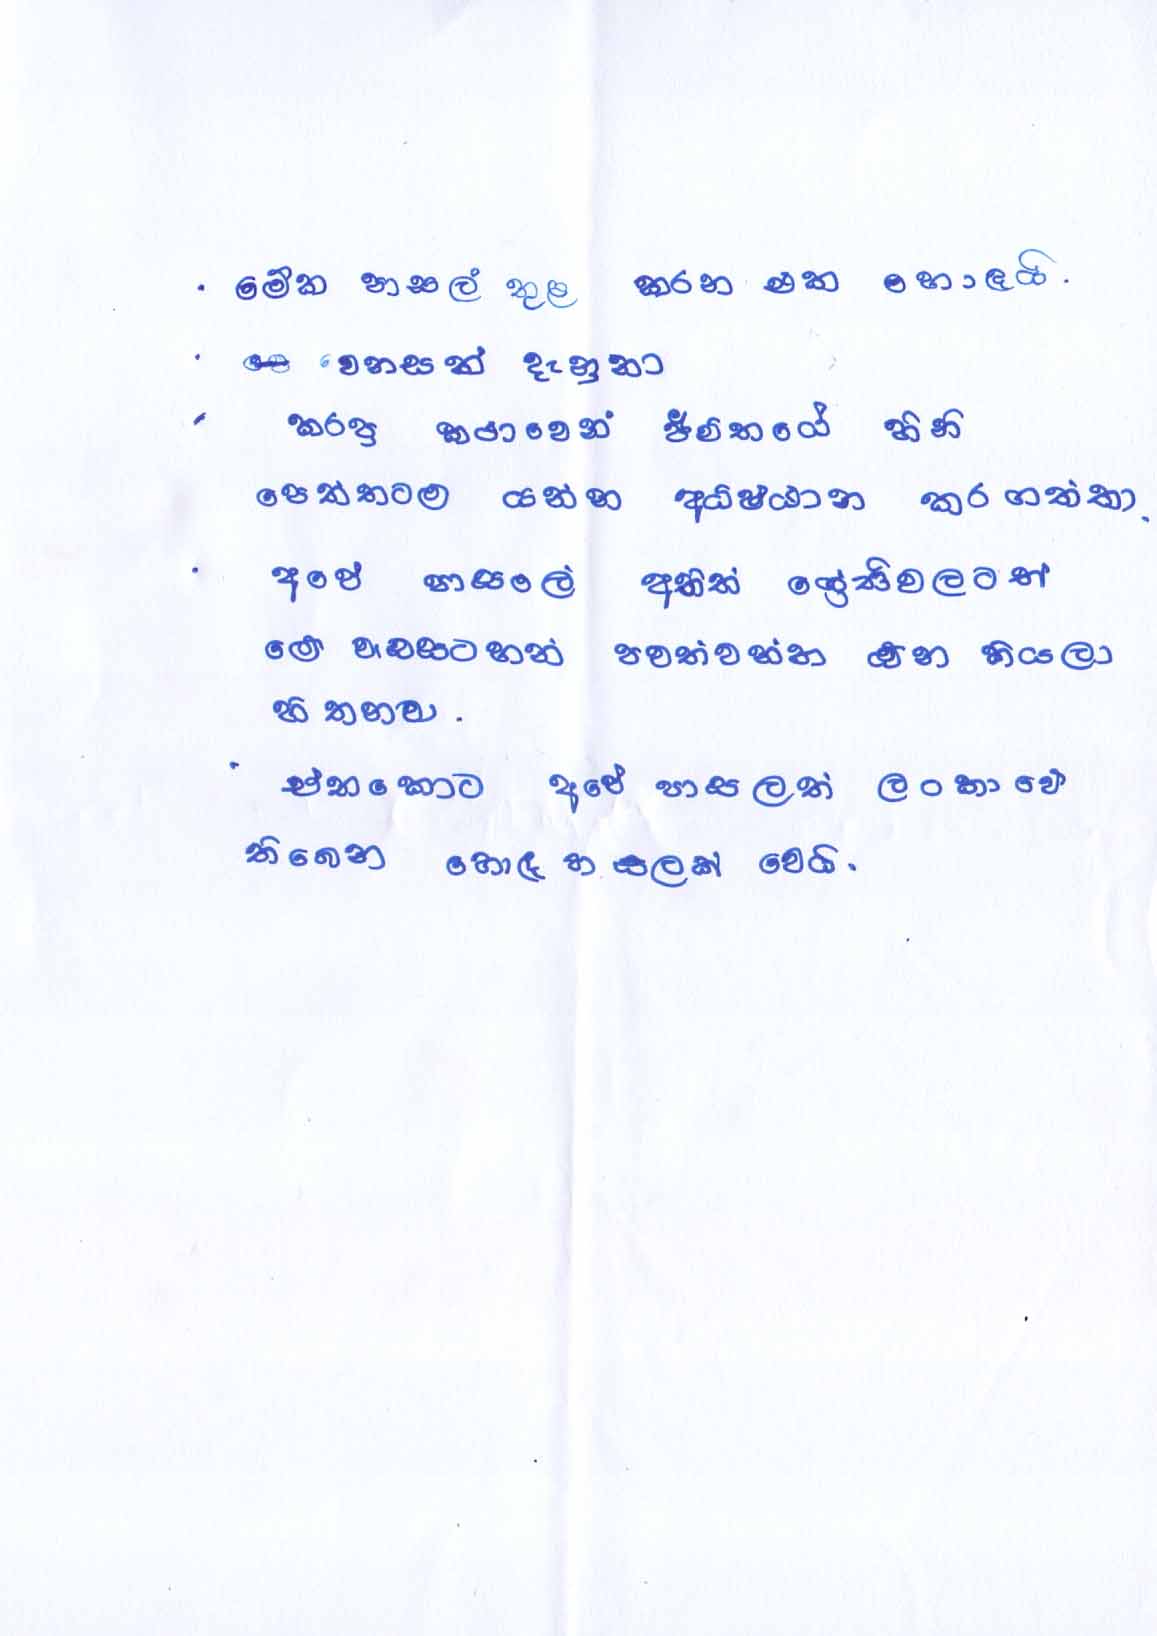 · මේක පාසල් තුළ කරන එක හොඳයි.
· වෙනසක් දැනුනා
කරපු කතාවෙන් ජීවිතයේ හිනි
පෙත්තටම යන්න අධිෂ්ඨාන කර ගත්තා.
· අපේ පාසලේ අනිත් ශ්‍රේණිවලටත්
මේ වැඩසටහන් පවත්වන්න ඕන කියලා
හිතනවා.
· එතකොට අපේ පාසලත් ලංකාවේ
තිබෙන හොඳ පාසලක් වෙයි.